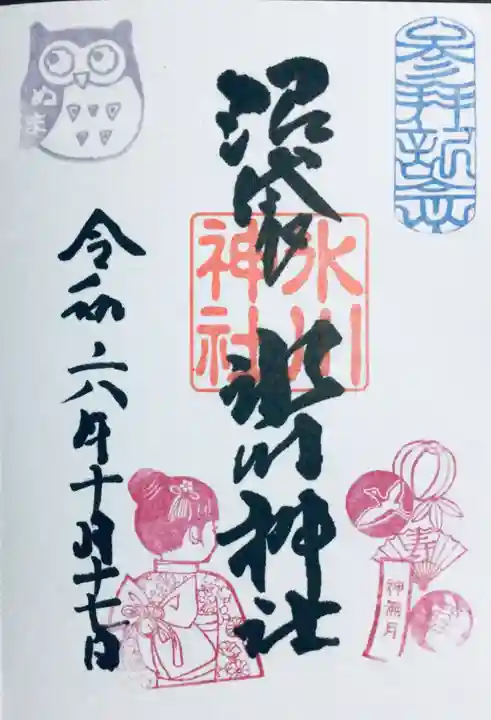 参拝記念
沼袋 氷川神社
氷川
神社
令和六年十月十七日
ぬま
寿
神無月